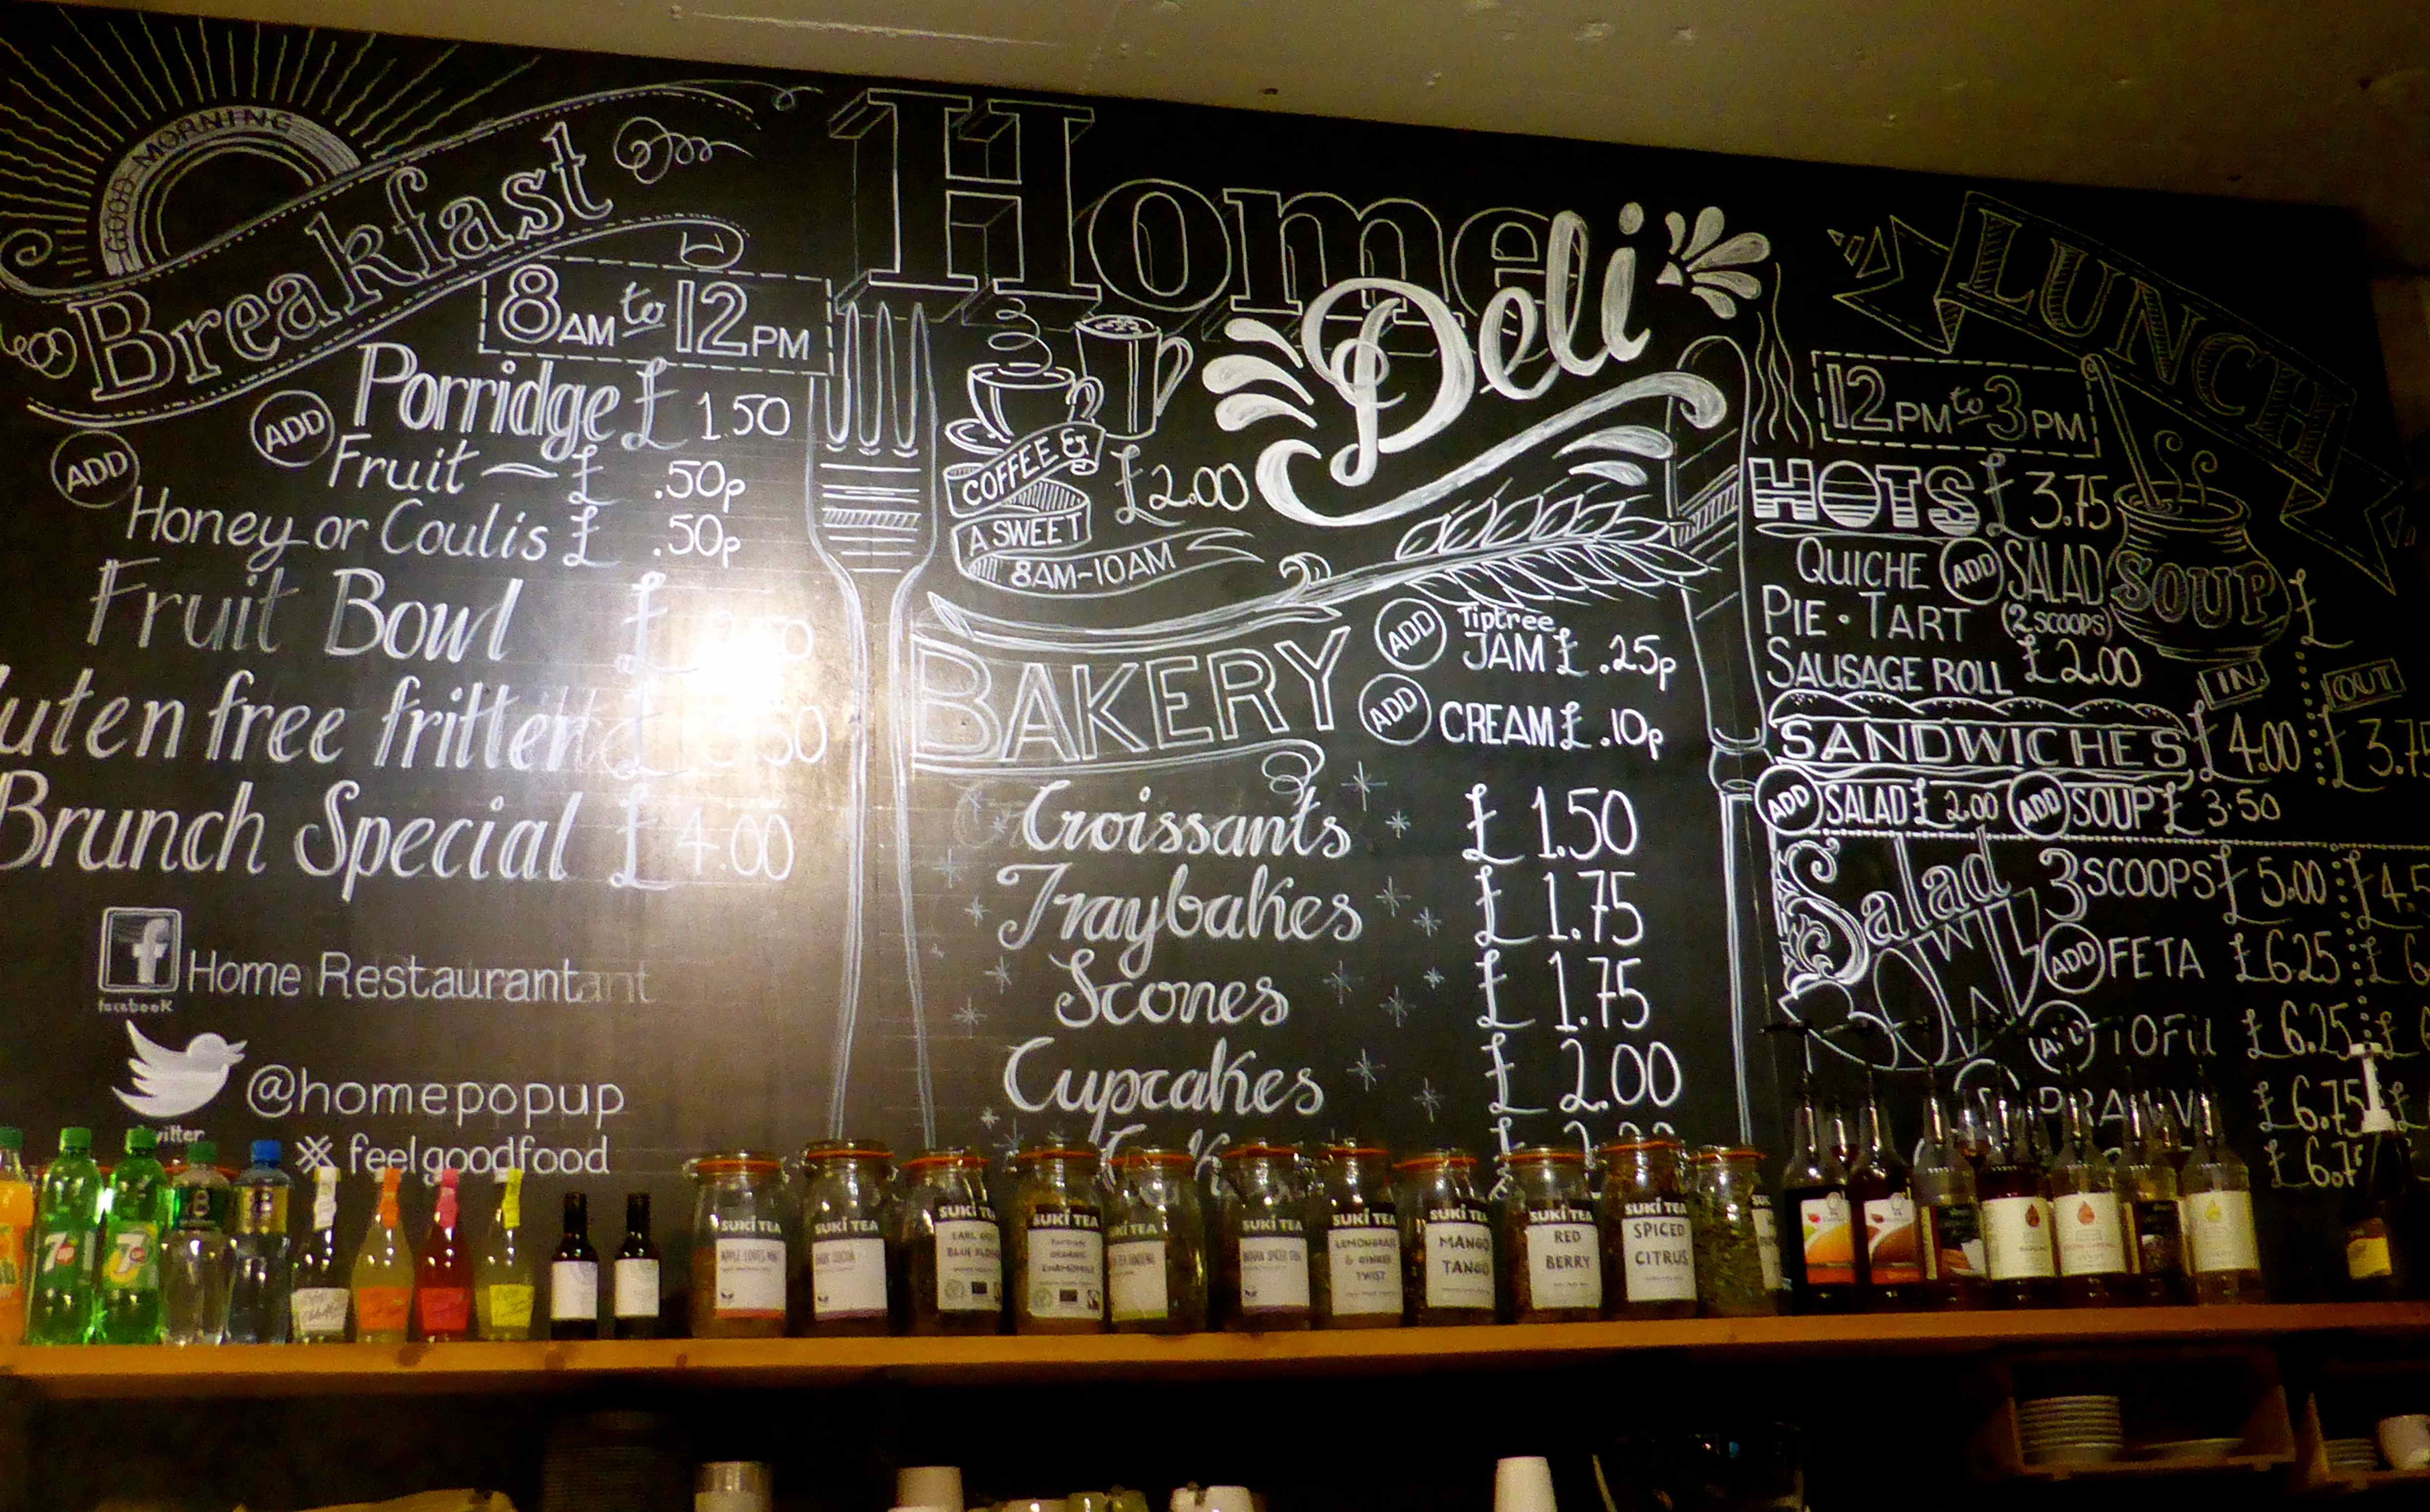 GOOD MORNING
Breakfast
8AM to 12PM
Porridge £ 1.50
ADD Fruit £ .50p
ADD Honey or Coulis £ .50p
Fruit Bowl £
luten free fritters £ .50
Brunch Special £ 4.00
facebook
Home Restaurant
twitter
@homepopup
feelgoodfood
Home
Deli
COFFEE & £2.00
A SWEET
8AM-10AM
BAKERY
ADD Tiptree
JAM £ .25p
ADD CREAM £ .10p
Croissants £ 1.50
Traybakes £ 1.75
Scones £ 1.75
Cupcakes £ 2.00
LUNCH
12PM to 3PM
HOTS £ 3.75
QUICHE ADD SALAD
PIE • TART (2 SCOOPS)
SAUSAGE ROLL £2.00
SOUP £
IN OUT
SANDWICHES £4.00 £3.75
ADD SALAD £ 2.00 ADD SOUP £ 3.50
Salad
BOWL
3 SCOOPS £ 5.00 £4.5
ADD FETA £6.25 £6
TOFU £6.25 £
PRAWN £6.75 £
7up
7up
SUKI TEA
SUKI TEA
SUKI TEA
EARL GREY
BLUE FLOWER
SUKI TEA
ORGANIC
CHAMOMILE
SUKI TEA
SUKI TEA
SUKI TEA
LEMONGRASS
& GINGER
TWIST
SUKI TEA
MANGO
TANGO
SUKI TEA
RED
BERRY
SUKI TEA
SPICED
CITRUS